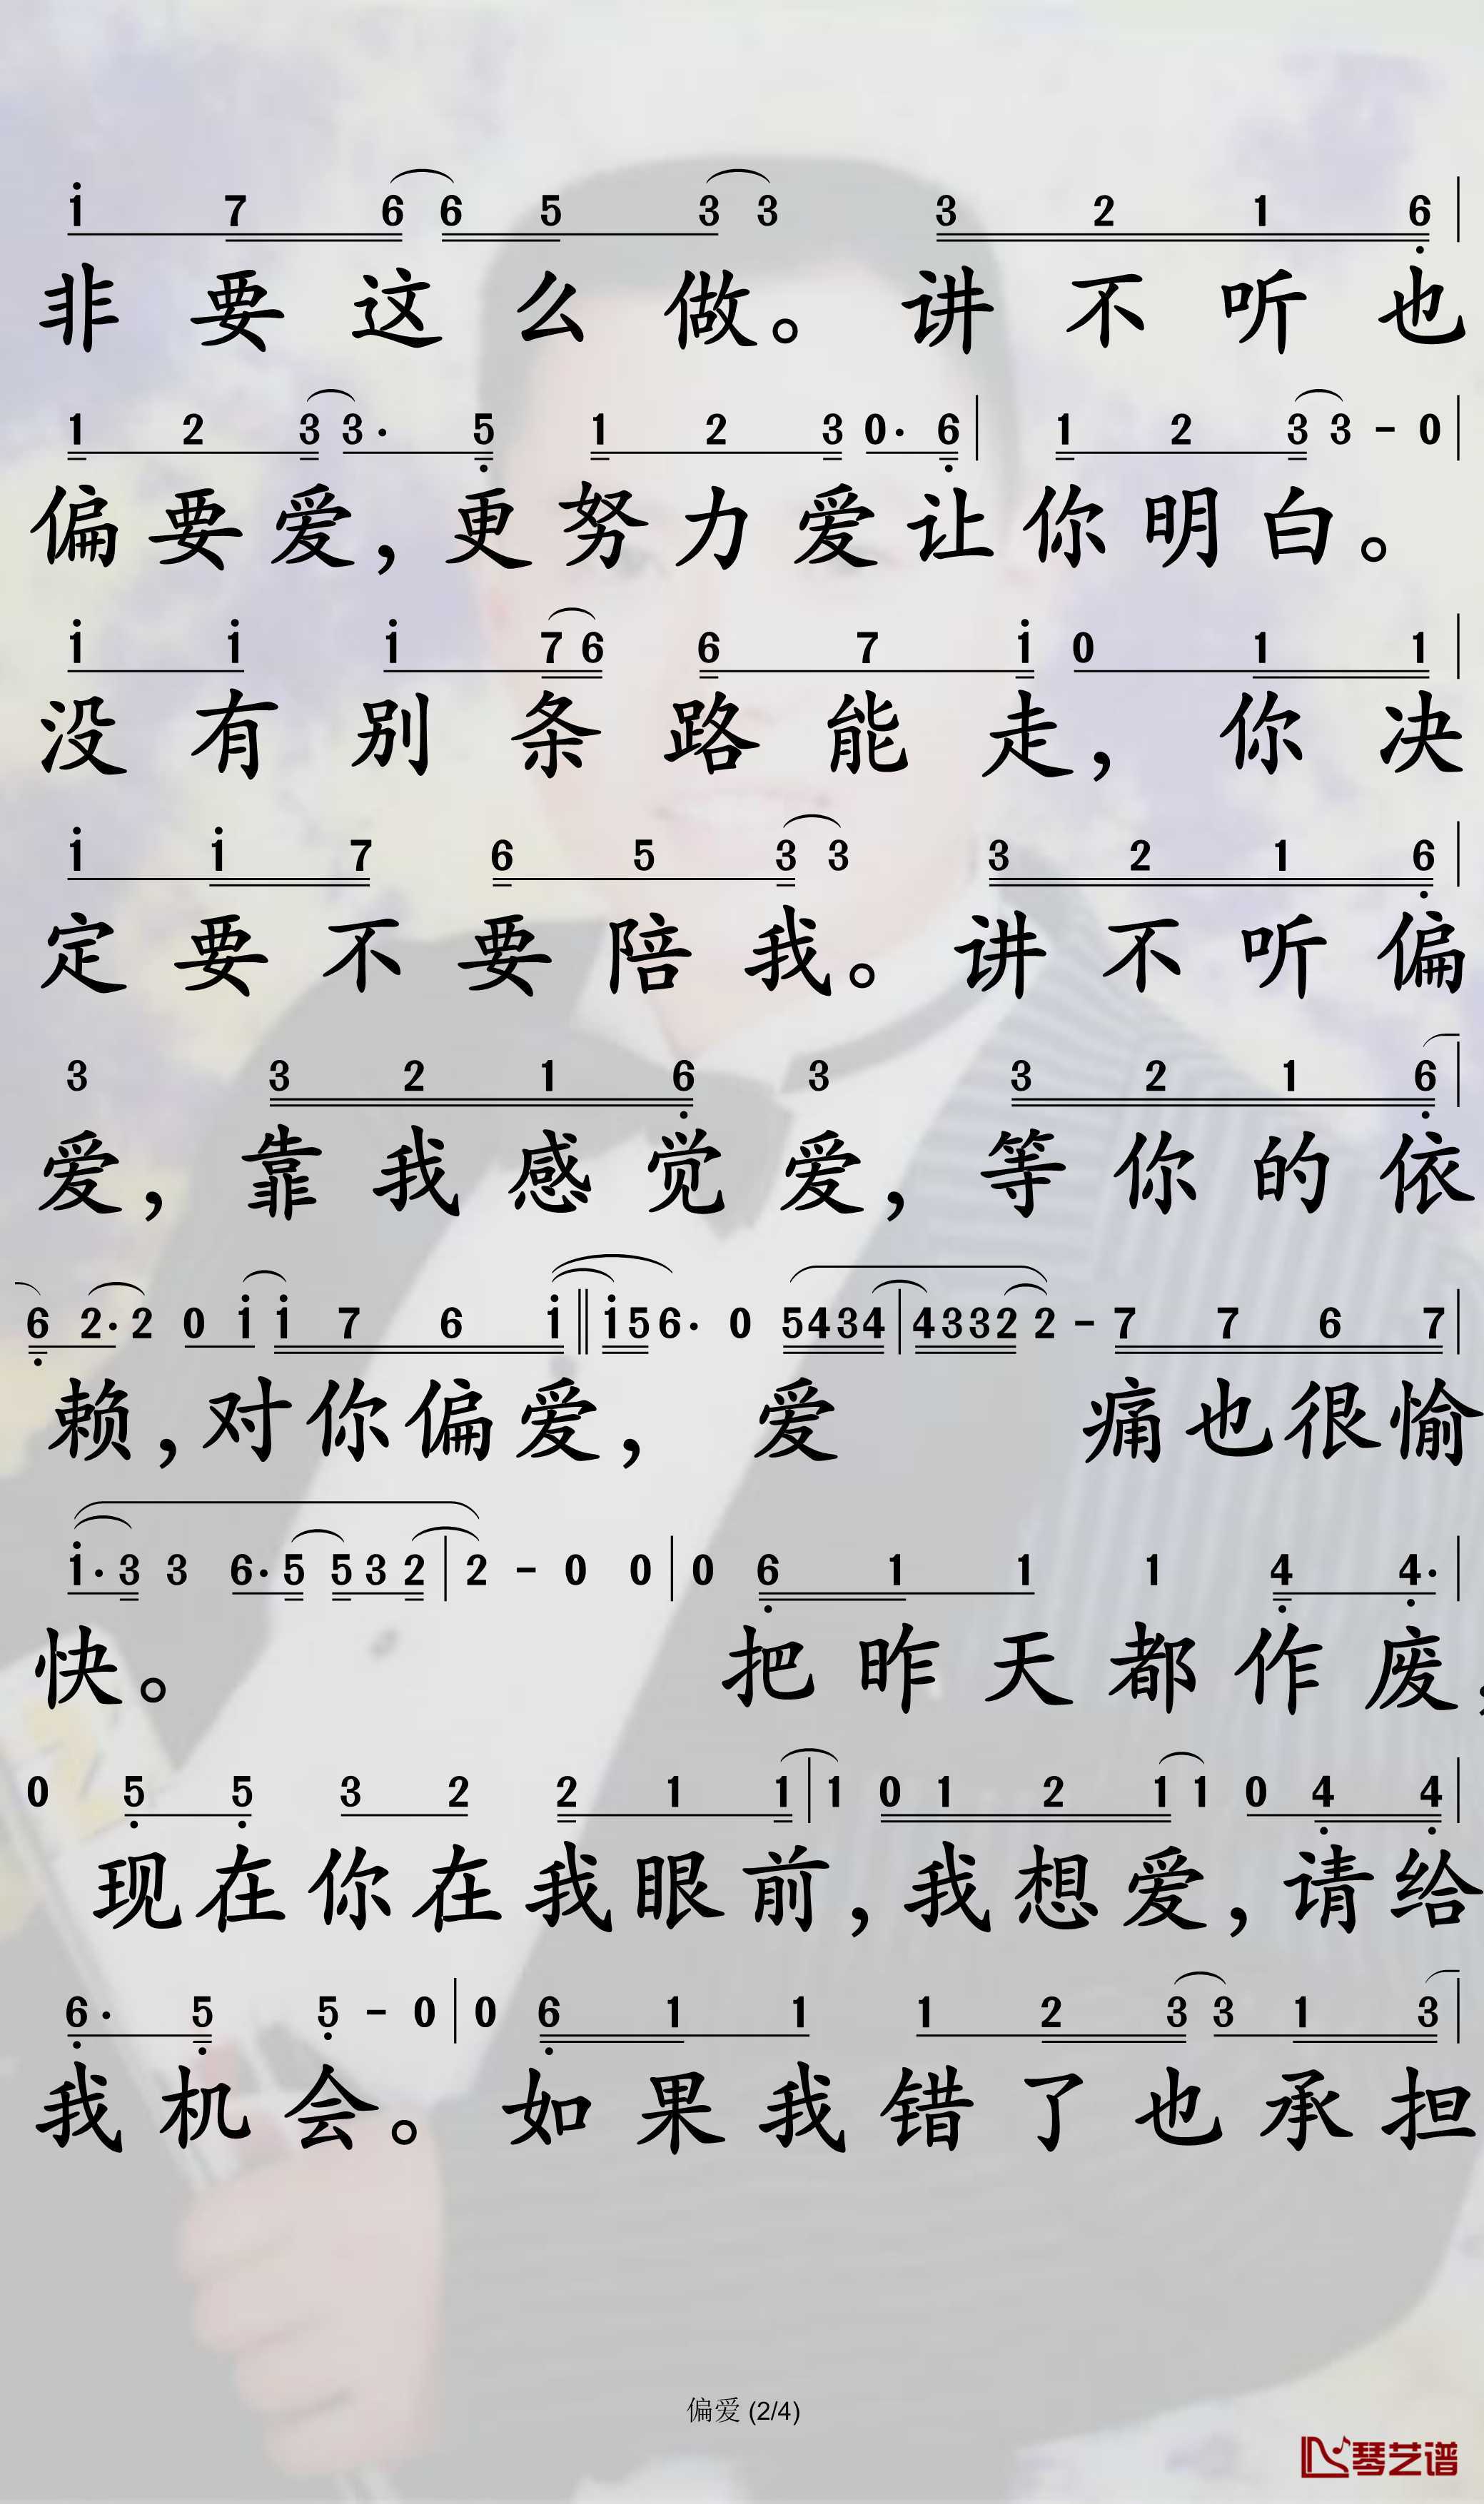 i 7 6 6 5 3 3 3 2 1 6
非要这么做。讲不听也
1 2 3 3· 5 1 2 3 0· 6 1 2 3 3 - 0
偏要爱，更努力爱让你明白。
i i i 7 6 6 7 i 0 1 1
没有别条路能走，你决
i i 7 6 5 3 3 3 2 1 6
定要不要陪我。讲不听偏
3 3 2 1 6 3 3 2 1 6
爱，靠我感觉爱，等你的依
6 2· 2 0 i i 7 6 i i 5 6· 0 5 4 3 4 4 3 3 2 2 - 7 7 6 7
赖，对你偏爱，爱痛也很愉
i· 3 3 6· 5 5 3 2 2 - 0 0 0 6 1 1 1 4 4·
快。把昨天都作废，
0 5 5 3 2 2 1 1 1 0 1 2 1 1 0 4 4
现在你在我眼前，我想爱，请给
6· 5 5 - 0 0 6 1 1 1 2 3 3 1 3
我机会。如果我错了也承担
偏爱 (2/4)
琴艺谱